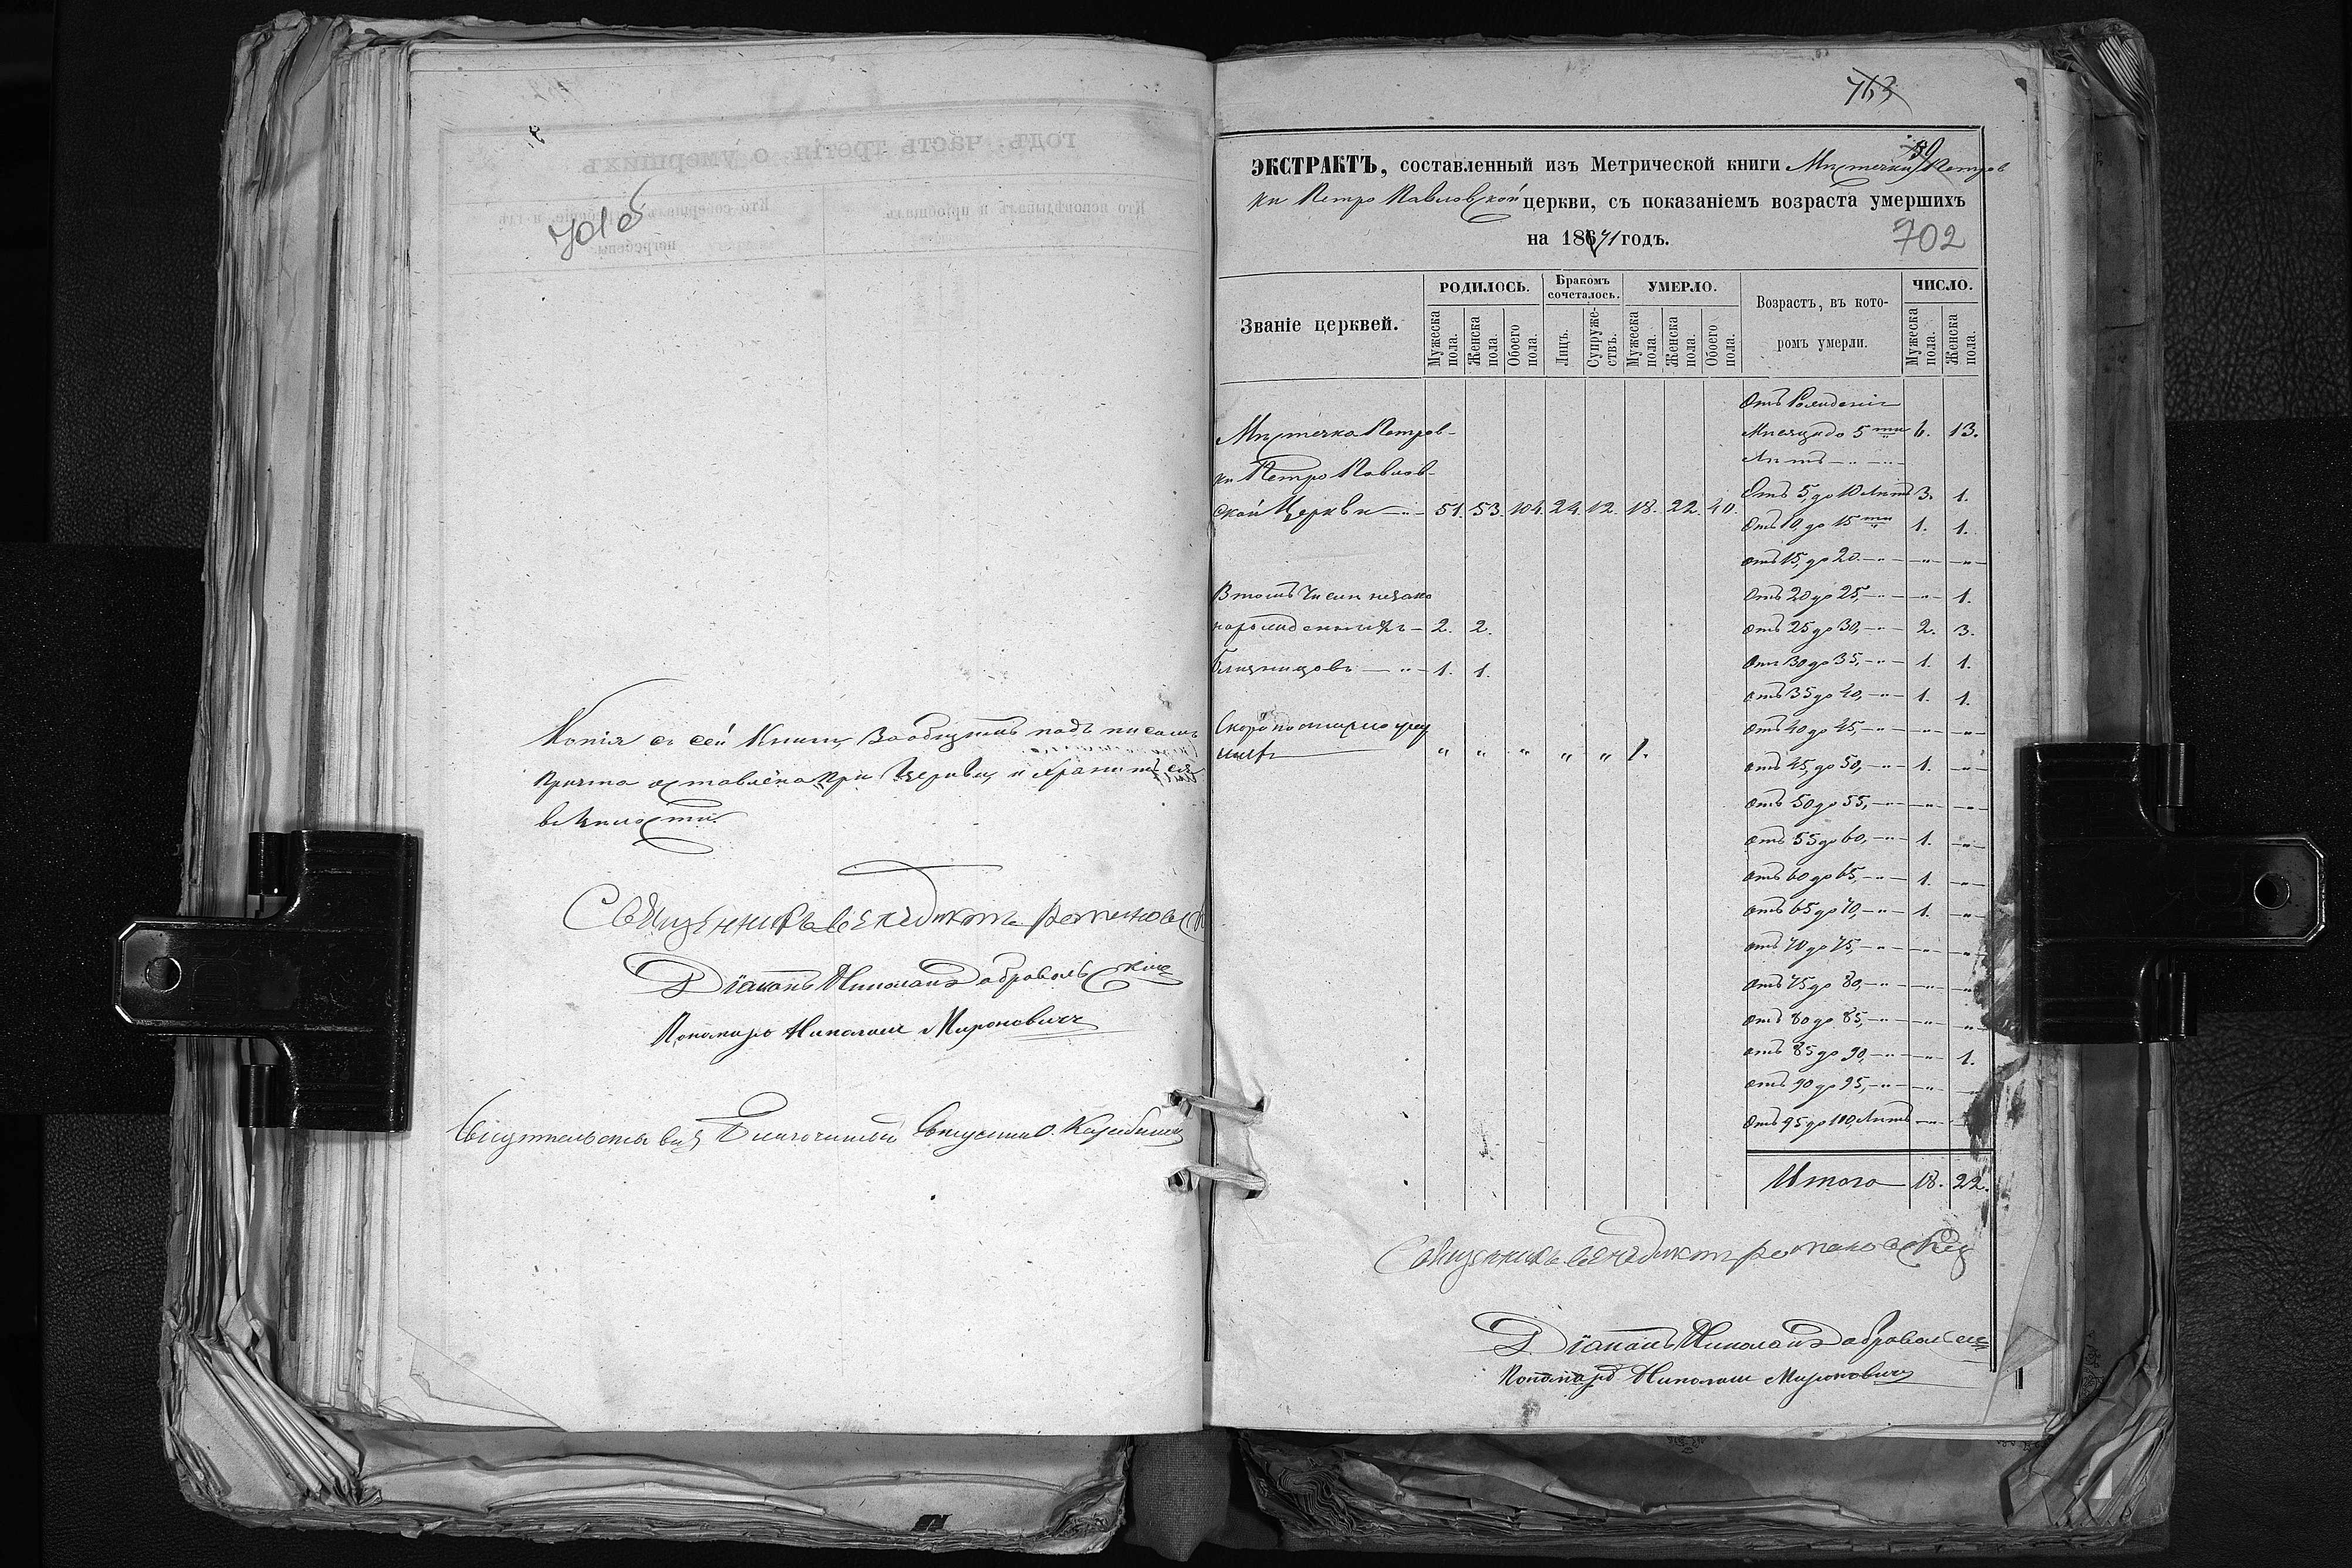 701 об
Копія съ сей Книги, за общимъ подписомъ
Причта оставлена при Церкви, и хранится
въ цѣлости.
Священникъ Венедиктъ Романовскій
Діаконъ Николай Добровольскій
Пономарь Николай Мироновичъ
Благочинный Священникъ
763
50
ЭКСТРАКТЪ, составленный изъ Метрической книги Мѣстечка Петров
ки Петро Павловской церкви, съ показаніемъ возраста умершихъ
на 1871 годъ.
702
Званіе церквей.
РОДИЛОСЬ.
Мужеска пола.
Женска пола.
Обоего пола.
Бракомъ сочеталось.
Лицъ.
Супружествъ.
УМЕРЛО.
Мужеска пола.
Женска пола.
Обоего пола.
Возрастъ, въ которомъ умерли.
ЧИСЛО.
Мужеска пола.
Женска пола.
Мѣстечка Петров-
ки Петро Павлов-
ской Церкви 51. 53. 104. 24. 12. 18. 22. 40.
Въ томъ числѣ незако
норожденныхъ 2. 2.
Близнецовъ 1. 1.
Скоропостижно умер
шихъ " " " " " 1.
Отъ Рожденія
до 5ти 6. 13.
Лѣтъ
Отъ 5, до 10 Лѣтъ 3. 1.
Отъ 10, до 15ти 1. 1.
отъ 15, до 20 - -
Отъ 20 до 25, - 1.
отъ 25 до 30, 2. 3.
Отъ 30 до 35, 1. 1.
отъ 35 до 40, 1. 1.
отъ 40 до 45, - -
отъ 45, до 50, 1. -
отъ 50 до 55, - -
отъ 55 до 60, 1. -
отъ 60 до 65, 1. -
отъ 65 до 70, 1. -
отъ 70 до 75, - -
отъ 75 до 80, - -
отъ 80 до 85, - -
отъ 85 до 90, - 1.
отъ 90 до 95, - -
отъ 95 до 100, Лѣтъ -
Итого 18. 22.
Священникъ Венедиктъ Романовскій
Діаконъ Николай Добровольскій
Пономарь Николай Мироновичъ